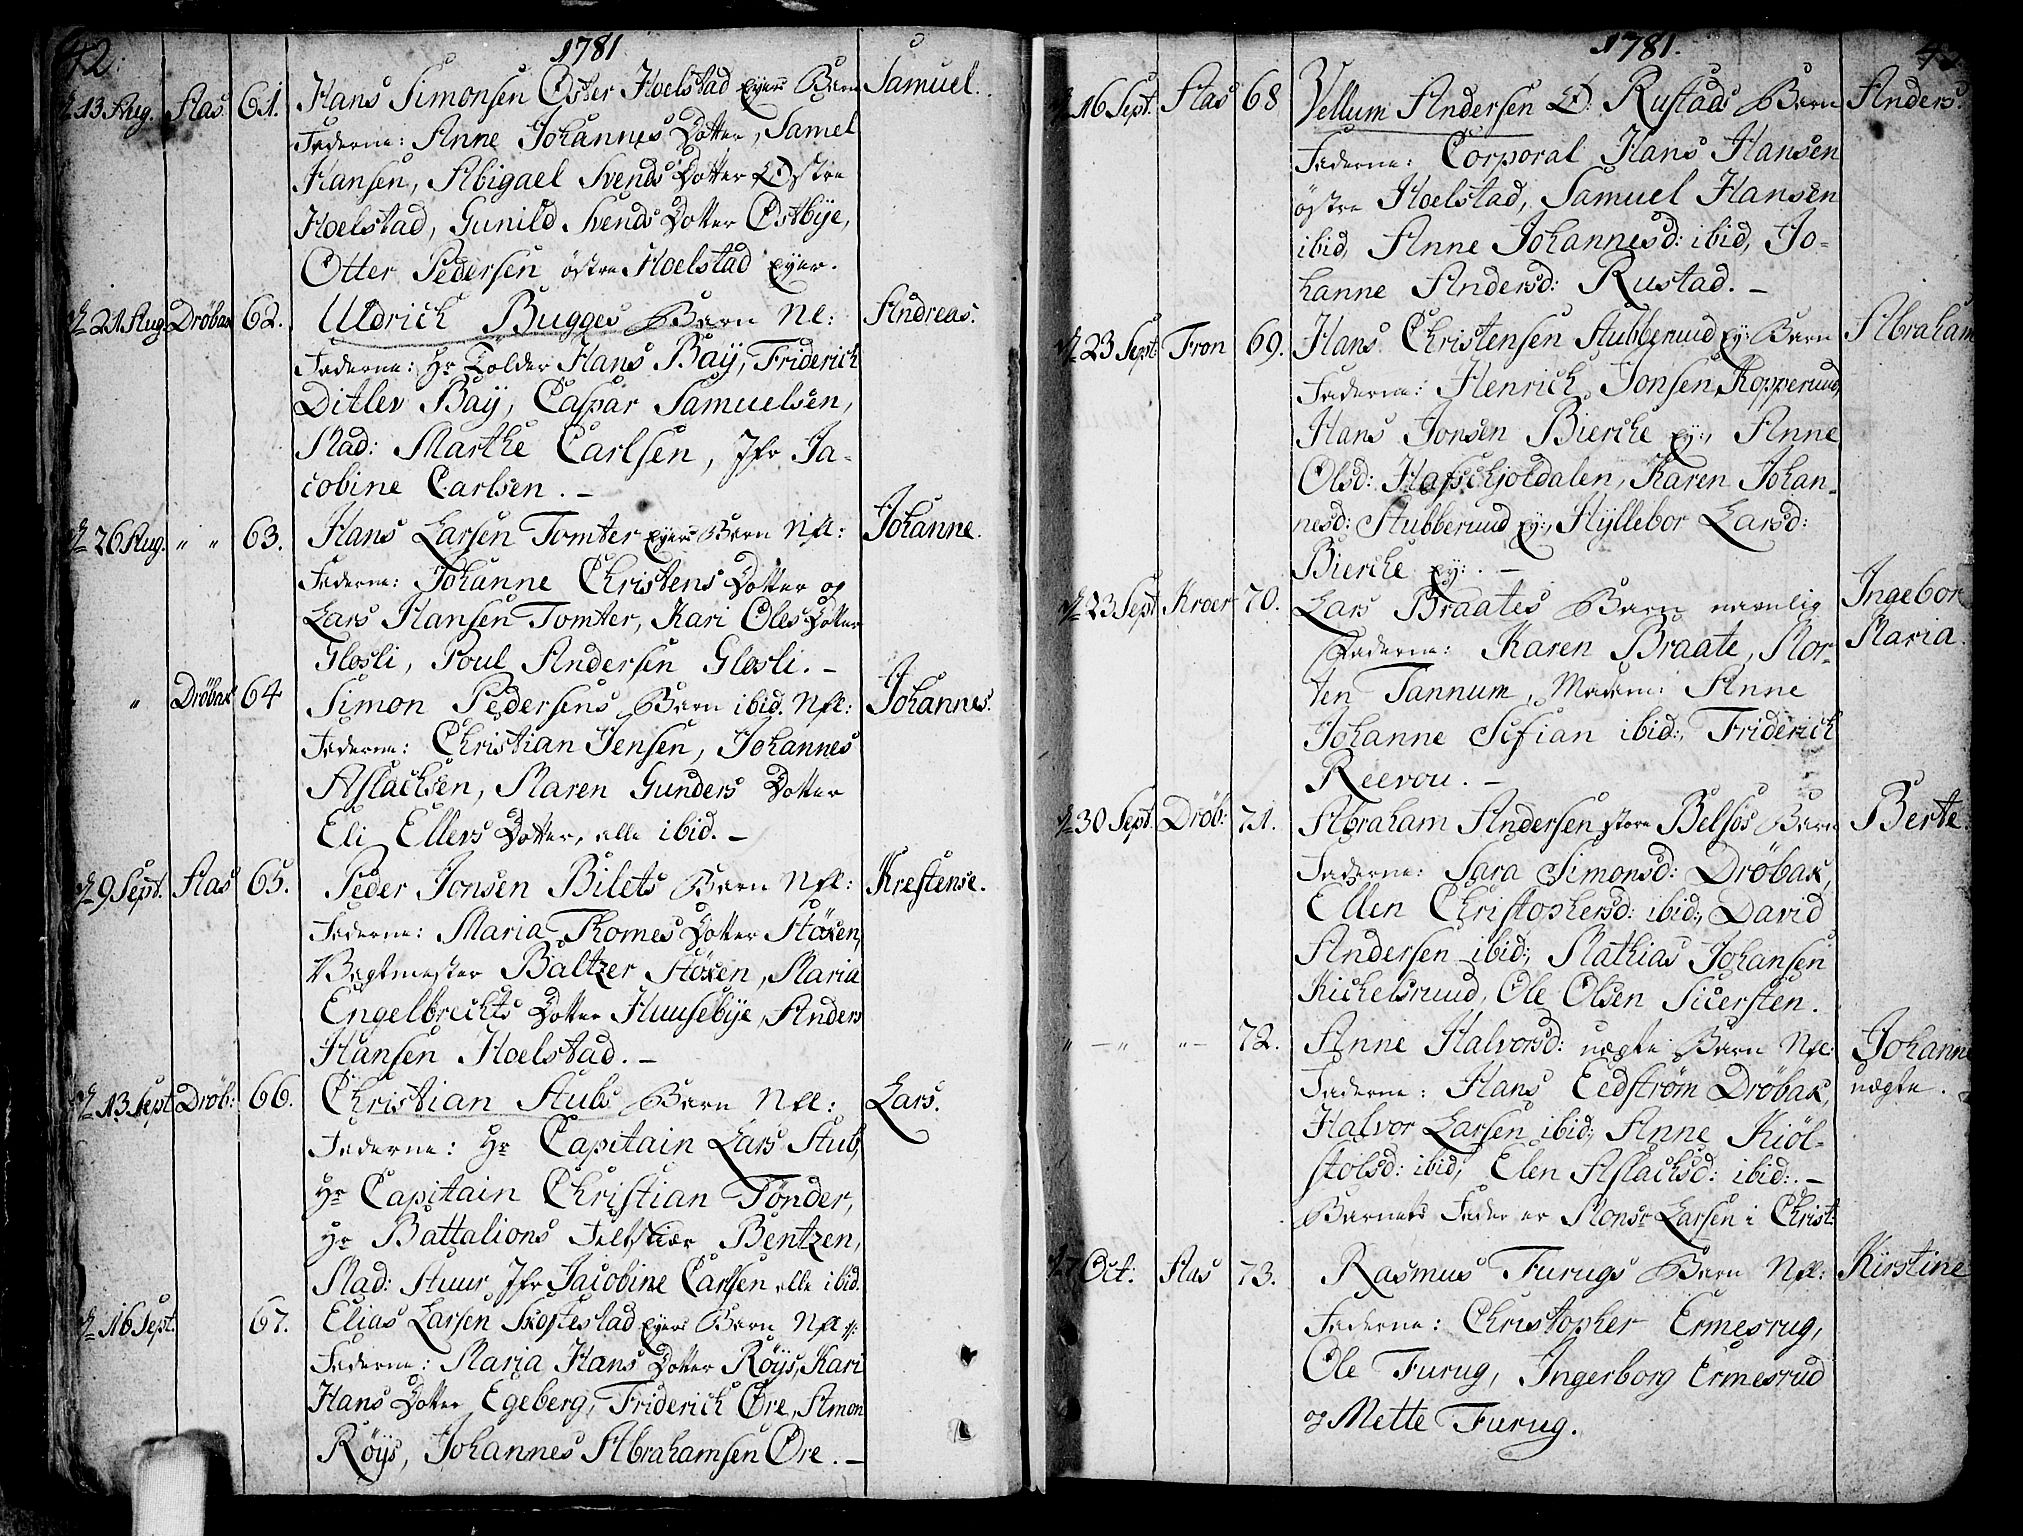 42.
1781
d. 13 Aug. Aas. 61. Hans Simonsen Öster Hoelstad eyers Barn Samuel.
Faderne: Anne Johannes Dotter, Samel
Hansen, Abigael Svends Dotter Østre
Hoelstad, Gunild Svends Dotter Østbÿe,
Otter Pedersen östre Hoelstad eyer.
d. 21 Aug. Dröbax 62. Uldrich Bugges Barn Ne: Andreas.
Faderne: Hr Tolder Hans Baÿ, Friderich
Ditlev Baÿ, Caspar Samuelsen,
Mad: Marthe Carlsen, Jfr Ja-
cobine Carlsen. –
d. 26 Aug. " " 63. Hans Larsen Tomter eyers Barn Nfl: Johanne.
Faderne: Johanne Christens Dotter og
Lars Hansen Tomter, Kari Oles Dotter
Glosli, Poul Andersen Glosli. –
" Dröbax 64 Simon Pedersens Barn ibid. Nfl: Johannes.
Faderne: Christian Jensen, Johannes
Aslachsen, Maren Gunders Dotter
Eli Ellevs Dotter, alle ibid. –
d. 9 Sept. Aas 65. Peder Jonsen Bilets Barn Nfl: Krestense.
Faderne: Maria Thomes Dotter Stöxen,
Vagtmester Baltzer Stöxen, Maria
Engelbrechts Dotter Huusebÿe, Anders
Hansen Hoelstad. –
d. 13 Sept Dröb: 66. Christian Stubs Barn Nfl: Lars.
Faderne: Hr Capitain Lars Stub,
Hr Capitain Christian Tönder,
Hr Battalions Feltskiær Bentzen,
Mad: Stuur, Jfr Jacobine Carlsen alle ibid.
d. 16 Sept. 67. Elias Larsen Skoftestad eyers Barn Nfl:
Faderne: Maria Hans Dotter Röÿs, Kari
Hans Dotter Egeberg, Friderich Øre, Amon
Röÿs, Johannes Abrahamsen Øre. –
1781.
43.
d. 16 Sept. Aas 68 Vellum Andersen Ø: Rustads Barn Anders.
Faderne: Corporal Hans Hansen
östre Hoelstad, Samuel Hansen
ibid, Anne Johannesd: ibid, Jo-
hanne Andersd: Rustad. –
d. 23 Sept Fron 69. Hans Christensen Stubberuud ey: Barn Abraham
Faderne: Henrich Jonsen Kopperuud,
Hans Jonsen Bierche ey:, Anne
Olsd: Hafschjoldalen, Karen Johan-
nesd: Stubberuud ey:, Hÿllebor Larsd:
Bierche ey:. –
d. 23 Sept Kroer 70. Lars Braates Barn navnlig Ingebor
Maria.
Faderne: Karen Braate, Mor-
ten Tannum, Madm: Anne
Johanne Sifian ibid:, Friderich
Reevou. –
d. 30 Sept. Dröb: 71. Abraham Andersen store Belsös Barn Berte.
Faderne: Sara Simonsd: Dröbax,
Ellen Christophersd: ibid:, David
Andersen ibid:, Mathias Johansen
Kichelsruud, Ole Olsen Sicersten.
" – " " – 72. Anne Halvorsd: uægte Barn Nfl: Johanne
uægte.
Faderne: Hans Eedström Dröbax,
Halvor Larsen ibid:, Anne Kiöl-
stölsd: ibid:, Elen Aslachsd: ibid:. –
Barnets Fader er Monsr Larsen i Christ:
d. 7 Oct: Aas 73. Rasmus Furugs Barn Nfl: Kirstine
Faderne: Christopher Ermesrug,
Ole Furug, Ingerborg Ermesrud
og Mette Furug.